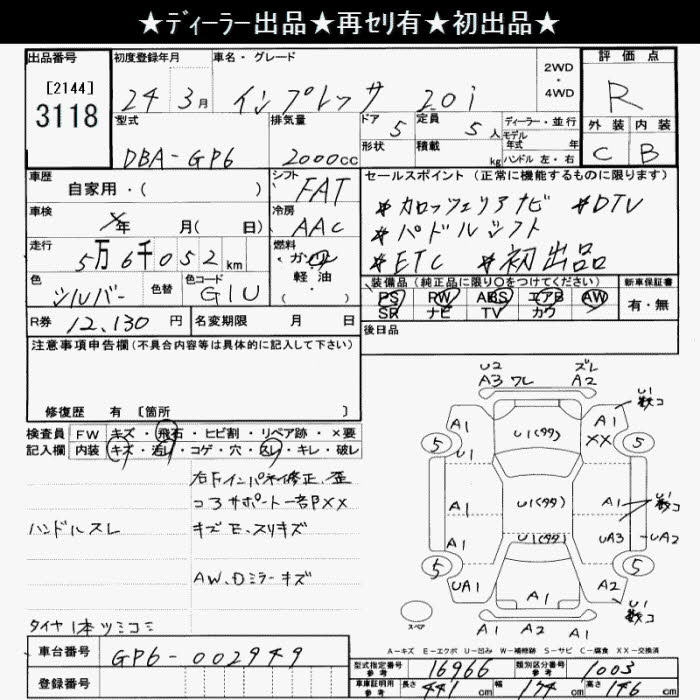 ★ディーラー出品★再セリ有★初出品★
出品番号
[2144]
3118
初度登録年月
24年 3月
車名・グレード
インプレッサ 2.0i
2WD
・
4WD
評価点
R
外装 内装
C B
型式
DBA-GP6
排気量
2000cc
ドア 5
形状
定員 5人
積載 kg
ディーラー・並行
モデル年式 年
ハンドル 左・右
車歴
自家用・( )
シフト
FAT
車検
×年 月( 日)
冷房
AAC
走行
5万6千052km
燃料
ガソリン
軽・油
( )
色
シルバー
色替
色コード
G1U
R券 12,130円
名変期限 月 日
セールスポイント (正常に機能するものに限ります)
*カロッツェリアナビ *DTV
*パドルシフト
*ETC *初出品
装備品(純正品に限り○をつけてください)
PS RW ABS エアB AW
SR ナビ TV カワ
新車保証書
有・無
後日品
注意事項申告欄(不具合内容等は具体的に記入して下さい)
修復歴 有 〔箇所 〕
検査員 FW キズ・飛石・ヒビ割・リペア跡・×要
記入欄 内装 キズ・汚レ・コゲ・穴・スレ・キレ・破レ
右Fインパネ修正、歪
コアサポート一部P××
ハンドルスレ
キズE、スリキズ
AW、Dミラーキズ
タイヤ1本ツミコミ
U2 ズレ
A3 ワレ A2
A1 U1(タタ) A1 ×× U1
5 5
U1
A1 U1(タタ) A1 U1
U1(タタ) UA3 UA2
5 5
UA1 A1 A2 U1
A1 A2 A1
スペア
A-キズ E-エクボ U-凹み W-補修跡 S-サビ C-腐食 XX-交換済
車台番号 GP6-002949
登録番号
型式指定番号 参考 16966
類別区分番号 参考 1003
車庫証明用 参考 長さ 441cm 幅 174cm 高さ 146cm